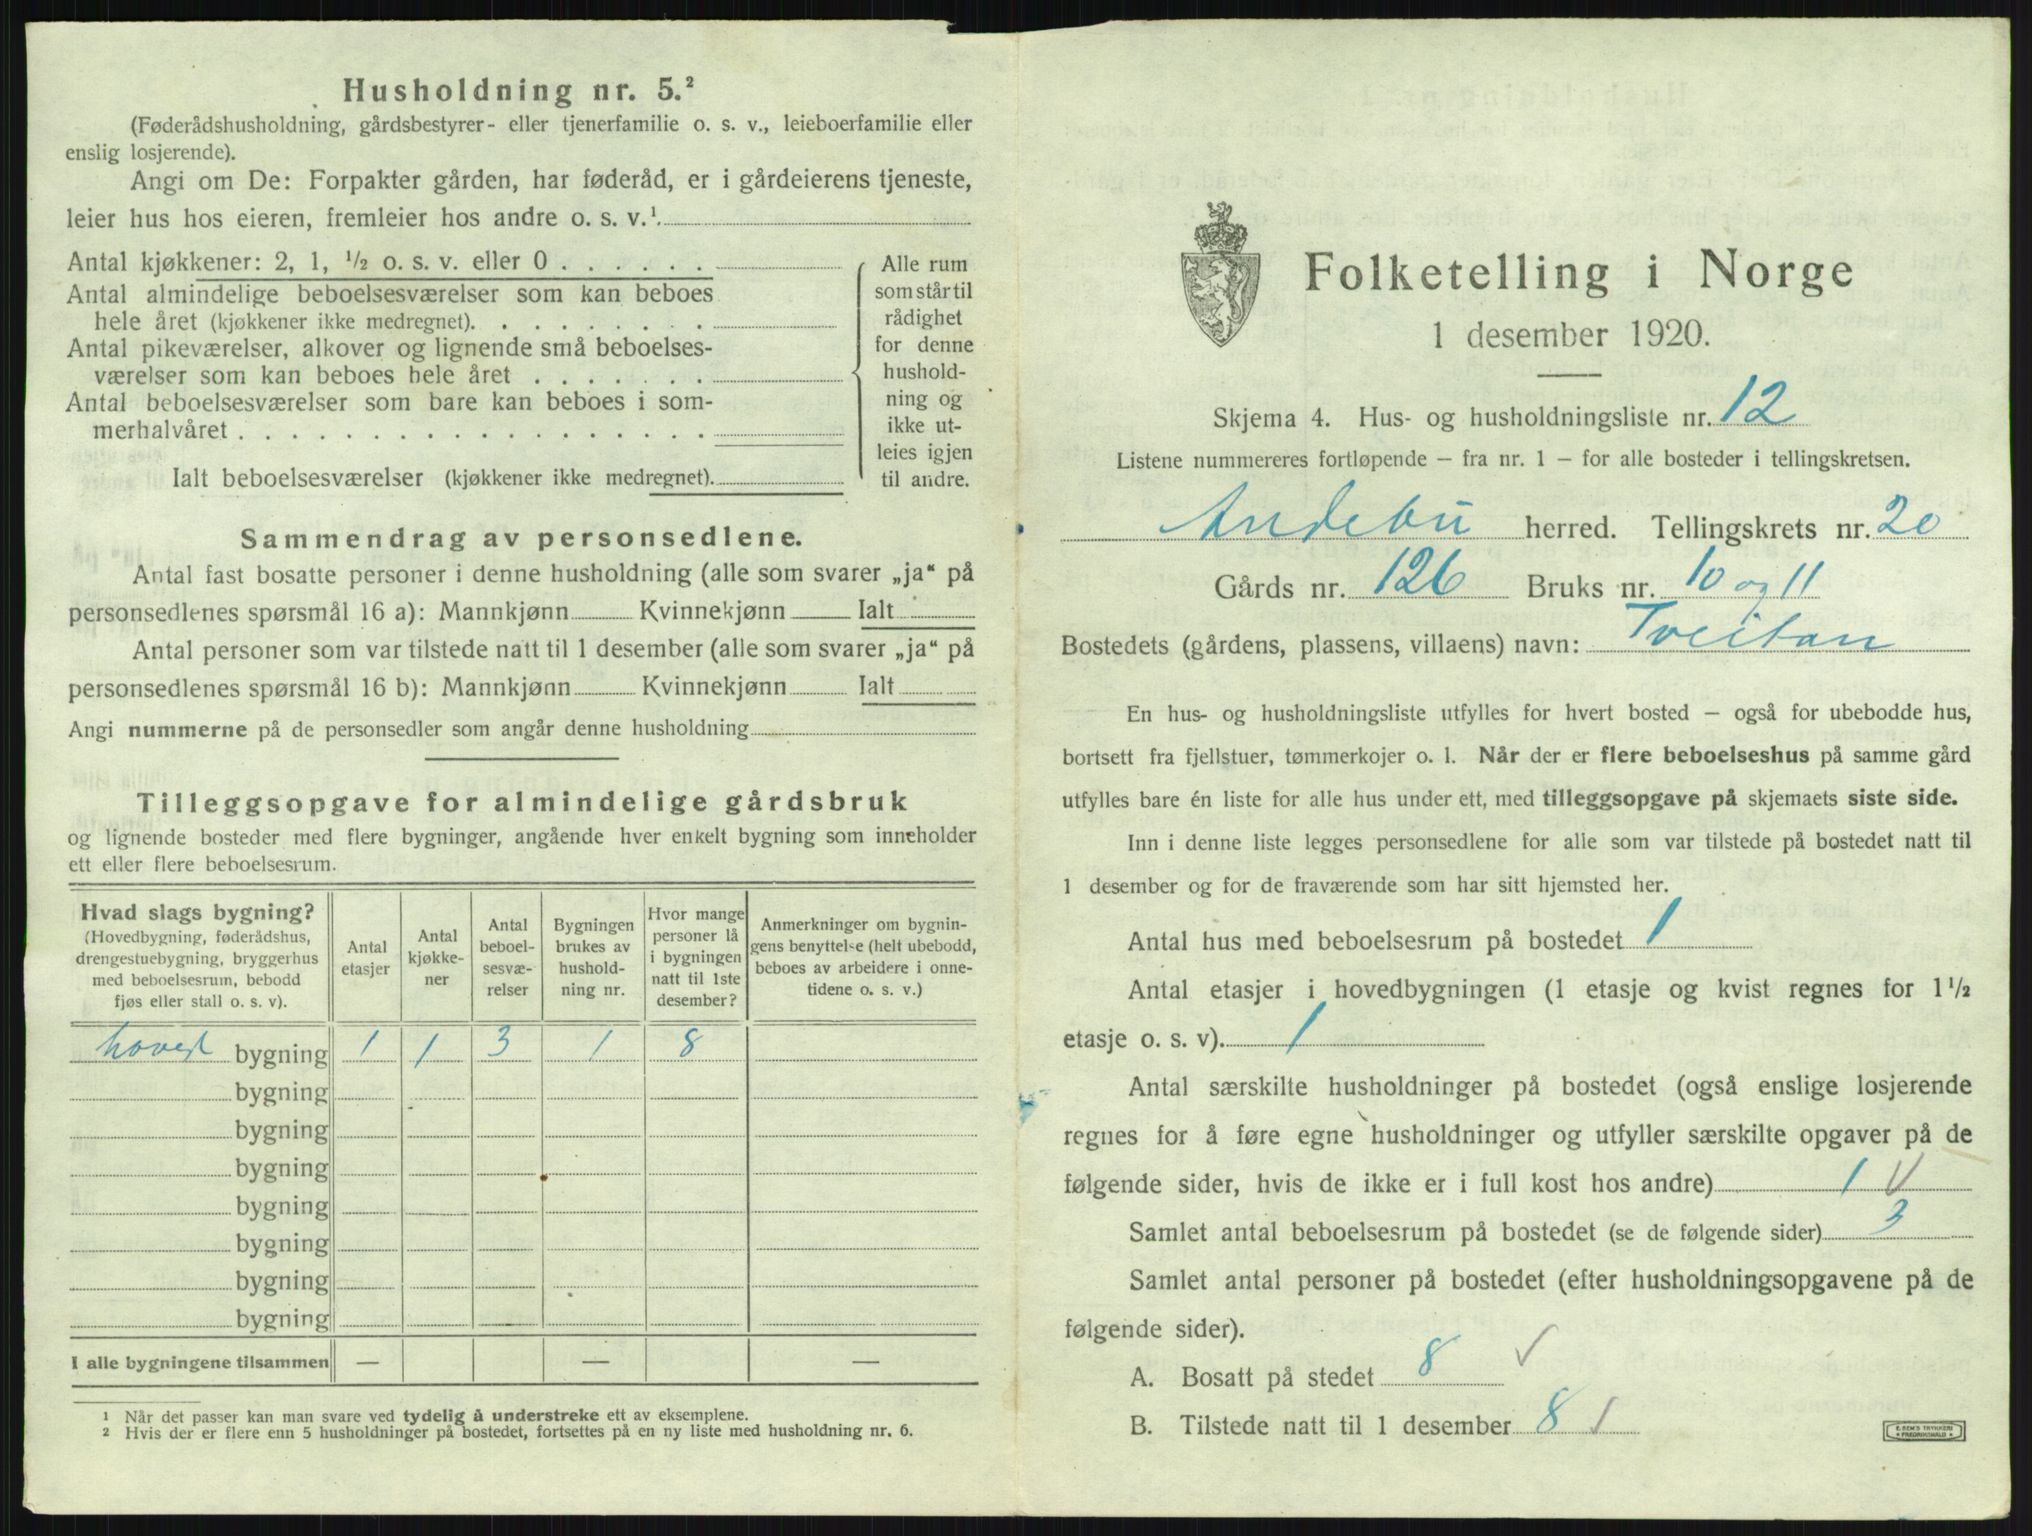 Husholdning nr. 5.²
(Føderådshusholdning, gårdsbestyrer- eller tjenerfamilie o. s. v., leieboerfamilie eller
enslig losjerende).
Angi om De: Forpakter gården, har føderåd, er i gårdeierens tjeneste,
leier hus hos eieren, fremleier hos andre o. s. v.¹
Antal kjøkkener: 2, 1, ½ o. s. v. eller 0 . . . . . .
Antal almindelige beboelsesværelser som kan beboes
hele året (kjøkkener ikke medregnet). . . . . . . . .
Antal pikeværelser, alkover og lignende små beboelses-
værelser som kan beboes hele året . . . . . . .
Antal beboelsesværelser som bare kan beboes i som-
merhalvåret . . . . . . . . . . . . . . . . . .
Ialt beboelsesværelser (kjøkkener ikke medregnet).
Alle rum
som står til
rådighet
for denne
hushold-
ning og
ikke ut-
leies igjen
til andre.
Sammendrag av personsedlene.
Antal fast bosatte personer i denne husholdning (alle som svarer „ja“ på
personsedlenes spørsmål 16 a): Mannkjønn Kvinnekjønn Ialt
Antal personer som var tilstede natt til 1 desember (alle som svarer „ja“ på
personsedlenes spørsmål 16 b): Mannkjønn Kvinnekjønn Ialt
Angi nummerne på de personsedler som angår denne husholdning
Tilleggsopgave for almindelige gårdsbruk
og lignende bosteder med flere bygninger, angående hver enkelt bygning som inneholder
ett eller flere beboelsesrum.
Hvad slags bygning?
(Hovedbygning, føderådshus,
drengestuebygning, bryggerhus
med beboelsesrum, bebodd
fjøs eller stall o. s. v).
Antal
etasjer
Antal
kjøkke-
ner
Antal
beboel-
sesvæ-
relser
Bygningen
brukes av
hushold-
ning nr.
Hvor mange
personer lå
i bygningen
natt til 1ste
desember?
Anmerkninger om bygnin-
gens benyttelse (helt ubebodd,
beboes av arbeidere i onne-
tidene o. s. v.)
hoved bygning 1 1 3 1 8
bygning
bygning
bygning
bygning
bygning
bygning
bygning
I alle bygningene tilsammen — — —
¹ Når det passer kan man svare ved tydelig å understreke ett av eksemplene.
² Hvis der er flere enn 5 husholdninger på bostedet, fortsettes på en ny liste med husholdning nr. 6.
Folketelling i Norge
1 desember 1920.
Skjema 4. Hus- og husholdningsliste nr. 12
Listene nummereres fortløpende — fra nr. 1 — for alle bosteder i tellingskretsen.
Andebu herred. Tellingskrets nr. 20
Gårds nr. 126 Bruks nr. 10 og 11
Bostedets (gårdens, plassens, villaens) navn: Tveitan
En hus- og husholdningsliste utfylles for hvert bosted — også for ubebodde hus,
bortsett fra fjellstuer, tømmerkojer o. l. Når der er flere beboelseshus på samme gård
utfylles bare én liste for alle hus under ett, med tilleggsopgave på skjemaets siste side.
Inn i denne liste legges personsedlene for alle som var tilstede på bostedet natt til
1 desember og for de fraværende som har sitt hjemsted her.
Antal hus med beboelsesrum på bostedet 1
Antal etasjer i hovedbygningen (1 etasje og kvist regnes for 1½
etasje o. s. v). 1
Antal særskilte husholdninger på bostedet (også enslige losjerende
regnes for å føre egne husholdninger og utfyller særskilte opgaver på de
følgende sider, hvis de ikke er i full kost hos andre) 1 √
Samlet antal beboelsesrum på bostedet (se de følgende sider) 3
Samlet antal personer på bostedet (efter husholdningsopgavene på de
følgende sider).
A. Bosatt på stedet 8 √
B. Tilstede natt til 1 desember 8 √
E. SEM'S TRYKKERI
FREDRIKSHALD